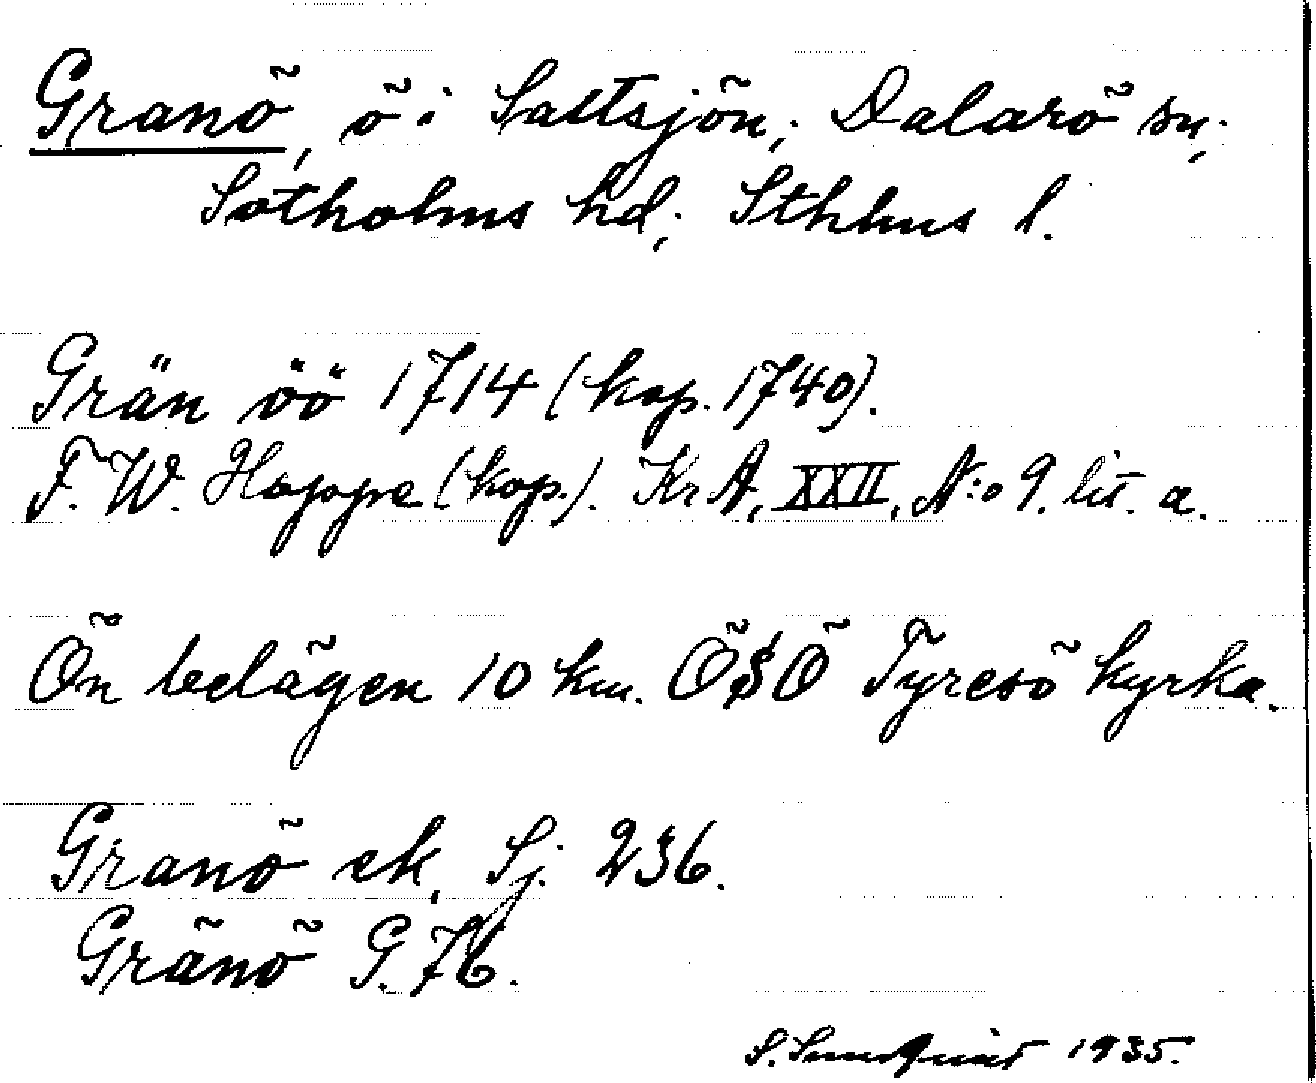 Granö, ö i Saltsjön; Dalarö sn;
Sotholms hd; Sthlms l.
Grän öö 1714 (kop. 1740).
F. W. Hoppe (kop.). KrA, XXII, N:o 9. lit. a.
Ön belägen 10 km. ÖSÖ Tyresö kyrka.
Granö ek, Sj. 236.
Gränö G. 76.
S. Sundquist 1935.